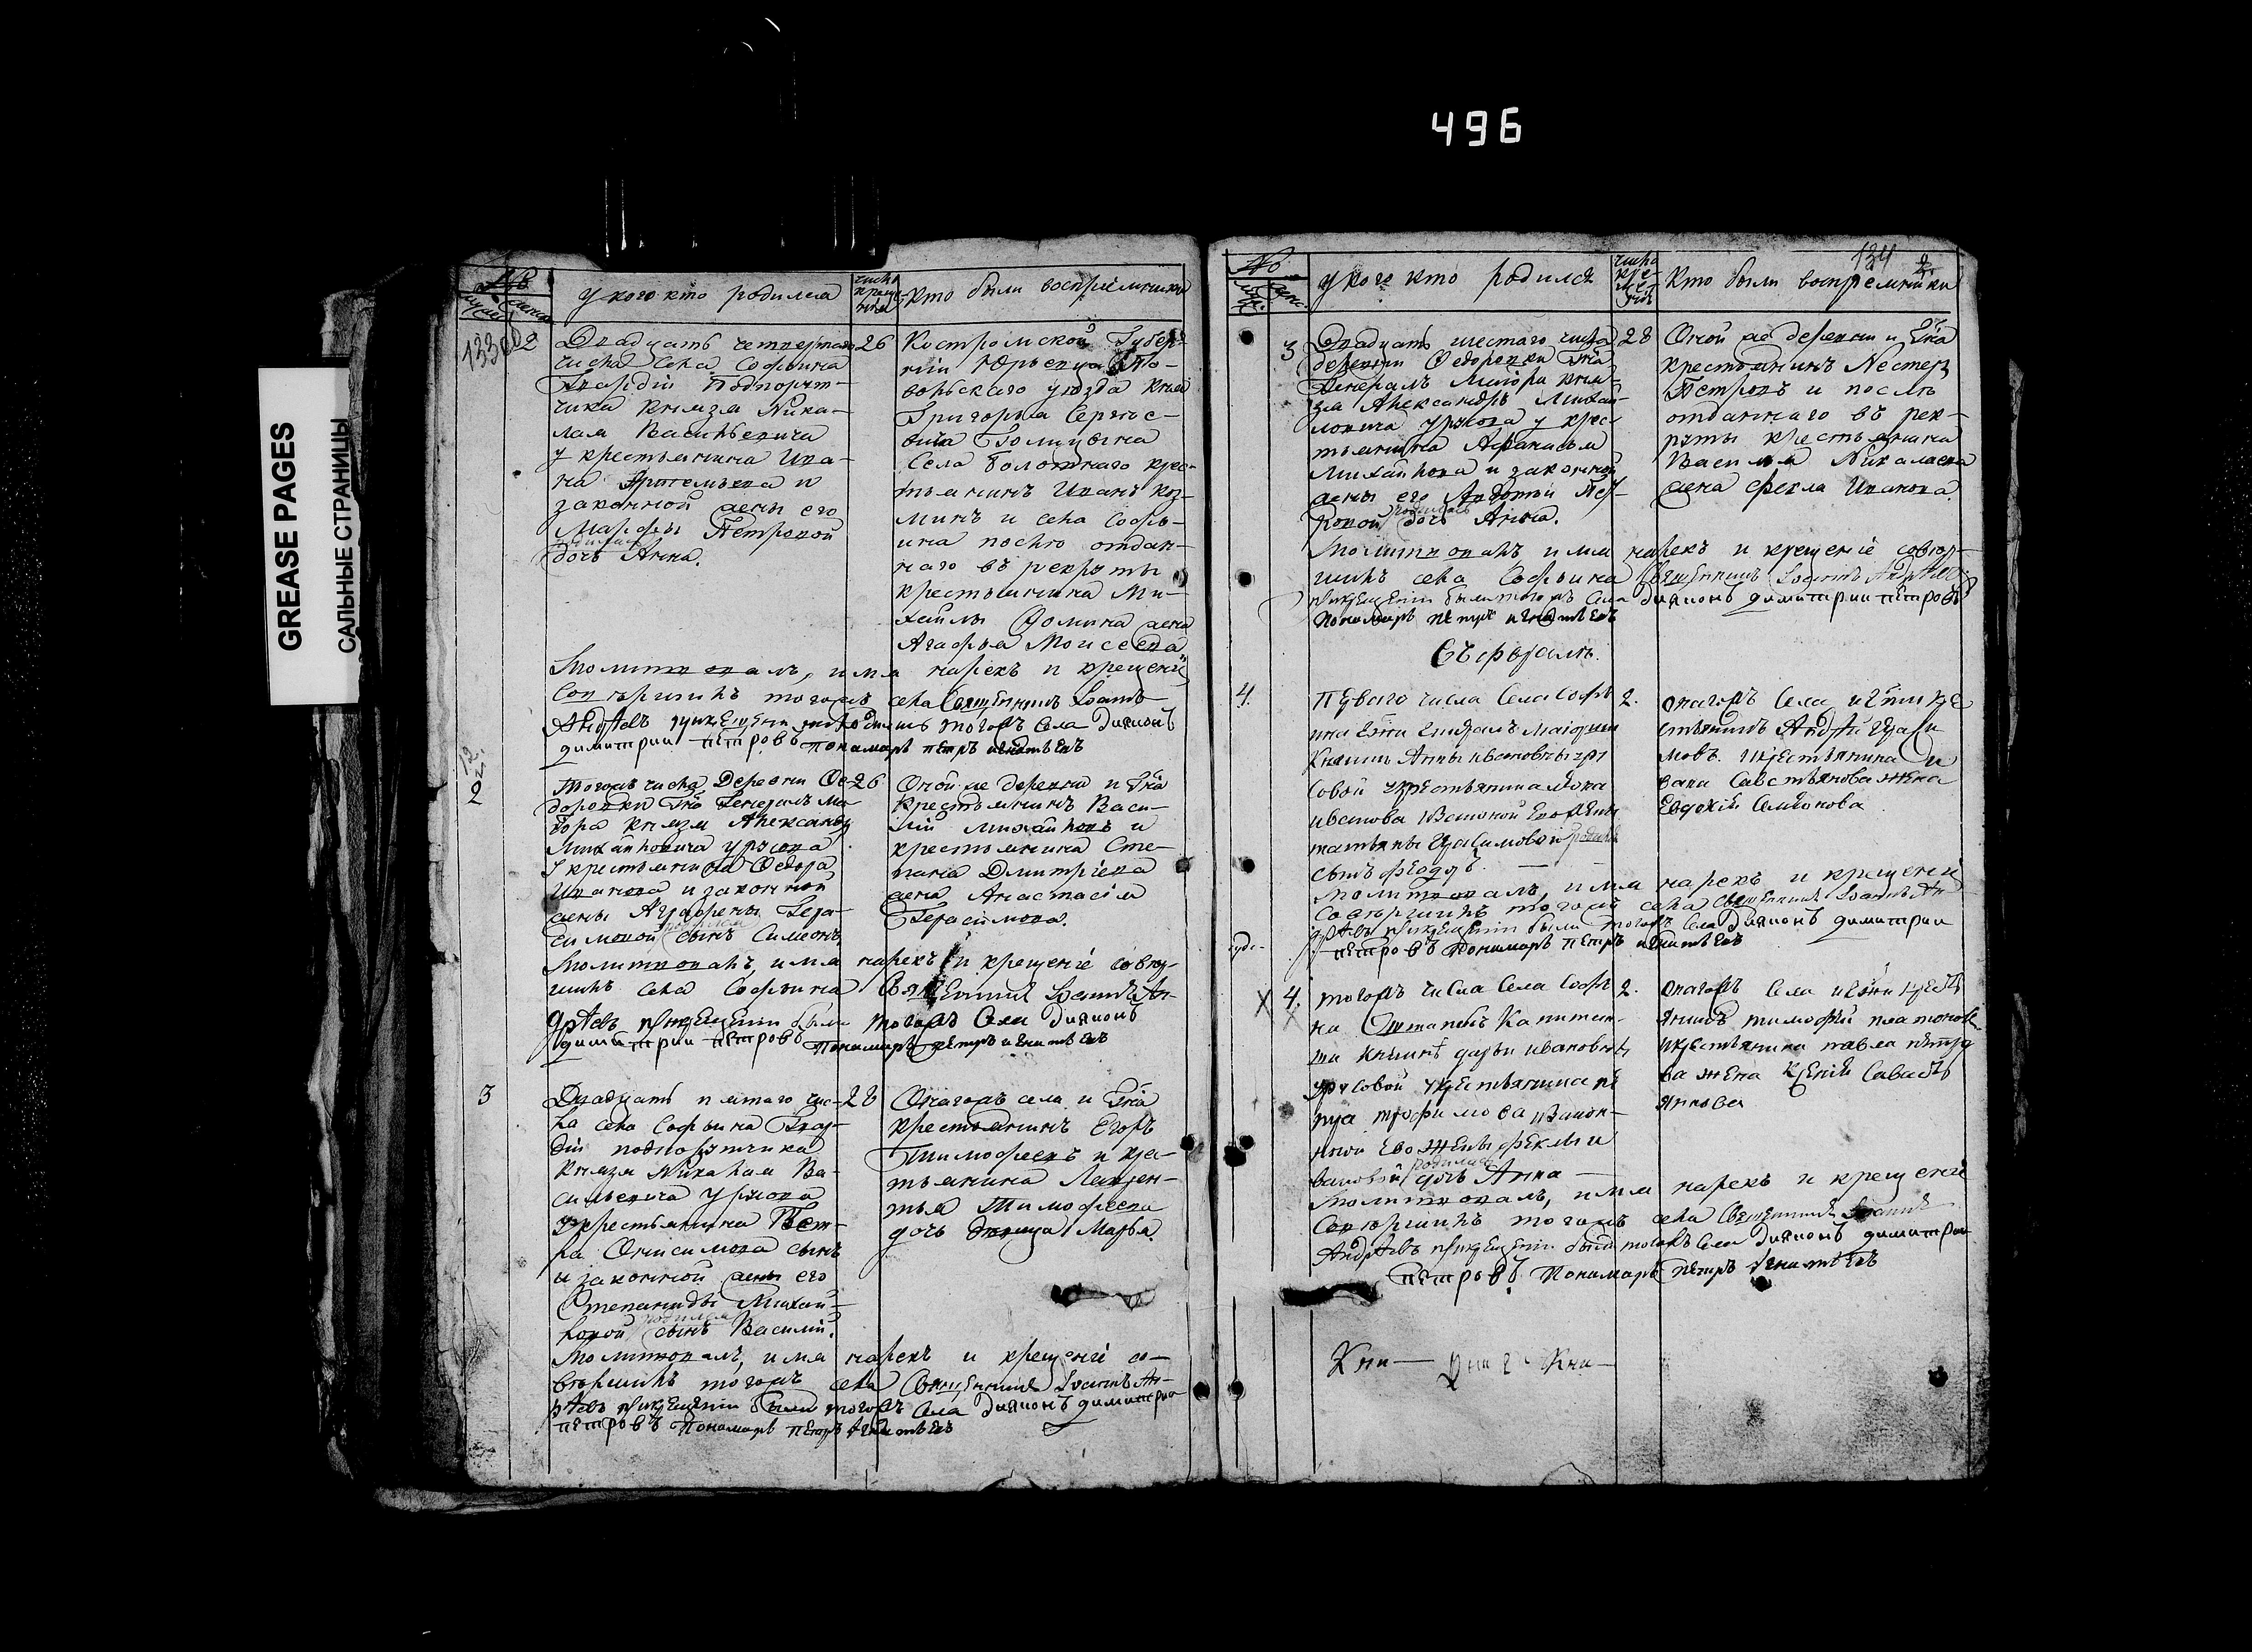 496
GREASE PAGES
САЛЬНЫЕ СТРАНИЦЫ
№
У кого кто родился
числа креще-нія
Кто были воспріемники
1330
2
Двадцать четвертаго
26
числа села Софьина
Гвардіи Подпорут-
чика князя Нико-
лая Васильевича
у крестьянина Ива-
на Артемьева и
законной жены его
Марфы Петровой
родилась
дочь Анна.
Костромской Губер-
ніи Юрьевца По-
вольскаго уѣзда князя
Григорья Сергѣе-
вича Голицына
Села Болотнаго крес-
тьянинъ Иванъ Коз-
минъ и села Софь-
ина послѣ отдан-
наго въ рекруты
крестьянина Ми-
хайлы Фомина жена
Агафья Моисеева
Молитвовалъ, имя нарекъ и крещеніе
совершилъ тогожъ села Священникъ Іоаннъ
Андреевъ тогожъ Села дияконъ
димитрии петровъ пономарь петръ игнатьевъ
12
2
2
Тогожъ числа Деревни Ѳе-
26
доровки Гна Генералъ Ма-
іора князя Александр
Михайловича Урусова
у крестьянина Ѳедора
Иванова и законной
жены Аграфены Гера-
симовой сынъ Симеонъ
Оной же деревни и Гна
крестьянинъ Васи-
лій Михайловъ и
крестьянина Сте-
пана Дмитріева
жена Анастасія
Герасимова.
Молитвовалъ, имя нарекъ и крещеніе совер-
шилъ села Софьина Священникъ Іоаннъ Ан-
дреевъ при крещеніи были тогожъ Села дияконъ
димитрии петровъ пономарь петръ игнатьевъ
3
Двадцать пятаго чис-
28
ла села Софьина Гвар-
діи подпорутчика
князя Николая Ва-
сильевича Урусова
у крестьянина Пет-
ра Онисимова сынъ
и законной жены его
Степаниды Михай-
родился
ловой сынъ Василій.
Онагожъ села и Гна
крестьянинъ Егоръ
Тимофеевъ и кре-
тьянина Лаврен-
тья Тимофеева
дочь девица Марья.
Молитвовалъ, имя нарекъ и крещеніе со-
вершилъ тогожъ села Священникъ Іоаннъ Ан-
древъ при крещеніи были тогожъ Села диякон димитрии
петровъ пономарь петръ игнатьевъ
134
№
У кого кто родился
числа кре-ще-нія
Кто были воспріемники
3
Двадцать шестаго числа
28
деревни Ѳедоровки Гна
Генералъ Маіора кня-
зя Александръ Михай-
ловича Урусова у крес-
тьянина Афанасья
Михайлова и законной
жены его Авдотьи Пет-
родилась
ровой дочь Анна.
Оной же деревни и Гна
крестьянинъ Нестеръ
Петровъ и послѣ
отданнаго въ рек-
руты крестьянина
Василья Николаева
жена Фекла Иванова.
Молитвовалъ имя нарекъ и крещеніе совер-
шилъ села Софьина Священникъ Іоаннъ Андреевъ
при крещеніи были тогожъ Села диякон димитрии петровъ
пономарь петръ игнатьевъ
Въ феврале.
4.
Перваго числа Села Софь
2.
ина Гжи Генералъ Маіорши
Княгини Анны Ивановны Уру
совой у крестьянина
Иванова и законной его жены
татьяны Герасимовой родился
сынъ феодоръ.
онагожъ Села и Гжи кре
стьянинъ Андрей Гераси
мовъ и крестьянина И
вана Савостьянова жена
Евдокия Семенова.
Молитвовалъ, имя нарекъ и крещеніе
совершилъ тогожъ села Священникъ Іоаннъ Ан
дреевъ при крещеніи были тогожъ Села диякон димитрии
петровъ пономарь петръ игнатьевъ
4.
тогожъ числа Села Софь
2.
на Капитан-
ши княгини дарьи ивановны
урусовой у крестьянина пе
тра трофимова и закон-
ной его жены феклы и
родилась
вановой дочь Анна
онагожъ Села и Гжи кресть
янинъ тимофей платоновъ
и крестьянина павла петро
ва жена Ксения Савасть
янова
Молитвовалъ, имя нарекъ и крещеніе
совершилъ тогожъ села Священникъ Іоаннъ
Андреевъ при крещеніи были тогожъ Села диякон димитрии
петровъ. пономарь петръ игнатьевъ